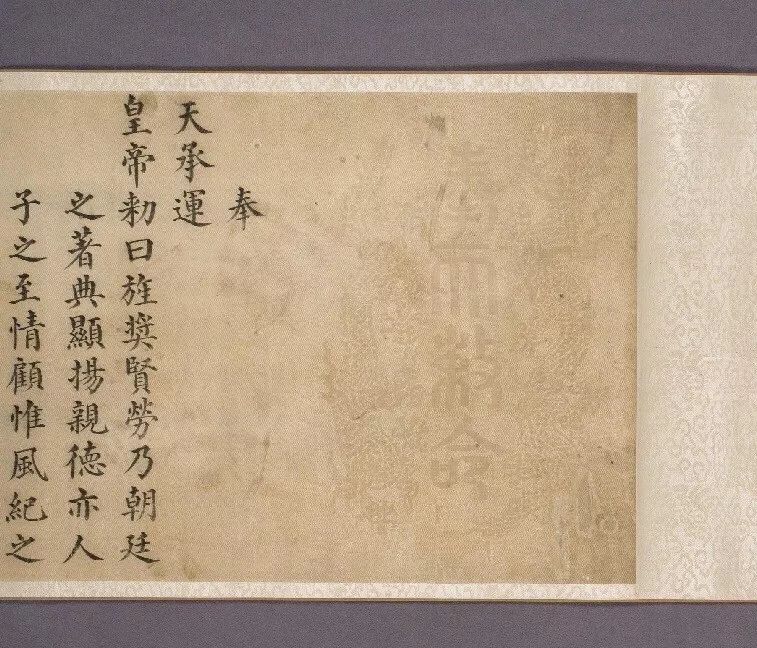 奉
天承運
皇帝勅曰旌獎賢勞乃朝廷
之著典顯揚親德亦人
子之至情顧惟風紀之